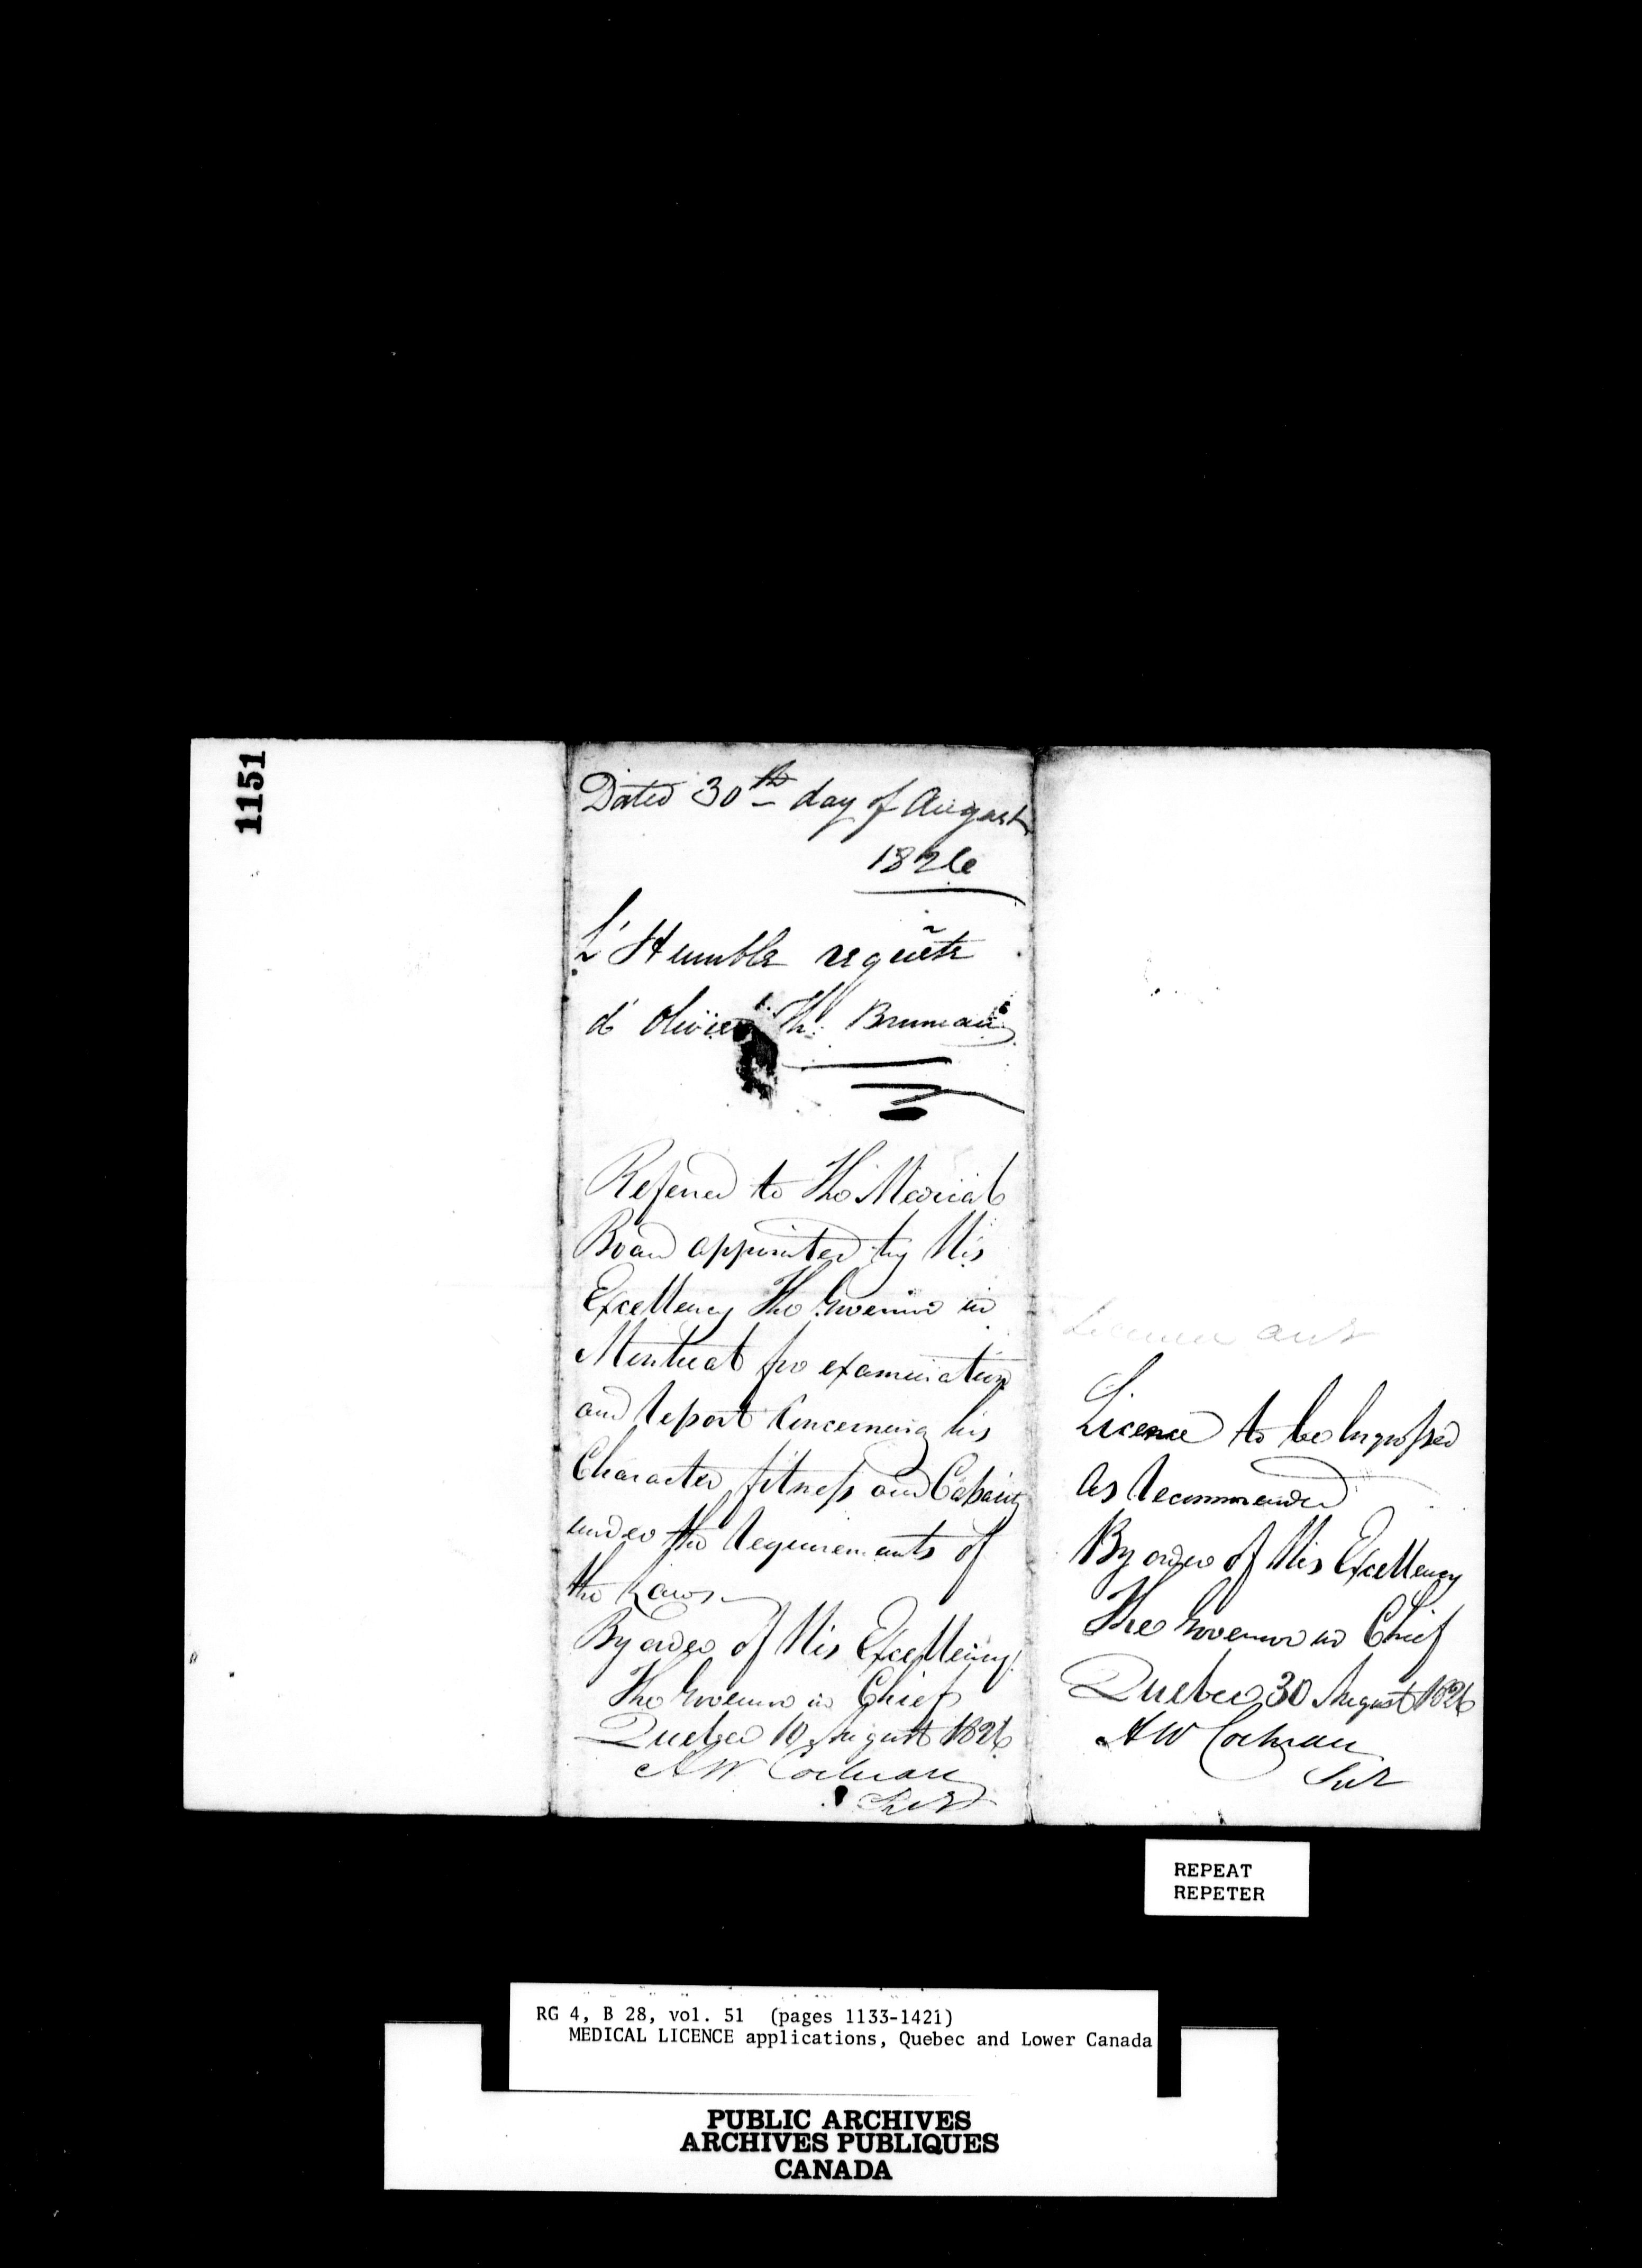 1151
Dated 30th day of August
1826
L'Humble requête
d'Olivier Th: Bruneau
Referred to The Medical
Board appointed by His
Excellency The Governor in
Montreal for examination
and report Concerning his
Character fitness and Capacity
under the requirements of
the Laws
By order of His Excellency
The Governor in Chief
Quebec 10 August 1826
A W Cochran
Secy
Licence to be Ingrossed
as recommended
By order of His Excellency
The Governor in Chief
Quebec 30 August 1826
A W Cochran
REPEAT
REPETER
RG 4, B 28, vol. 51 (pages 1133-1421)
MEDICAL LICENCE applications, Quebec and Lower Canada
PUBLIC ARCHIVES
ARCHIVES PUBLIQUES
CANADA